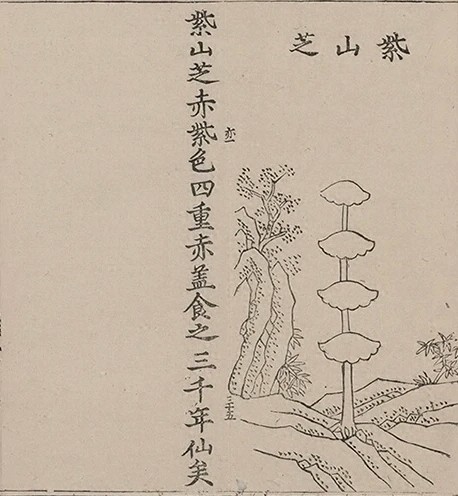 紫山芝
亦一
三十五
紫山芝赤紫色四重赤盖食之三千年仙矣